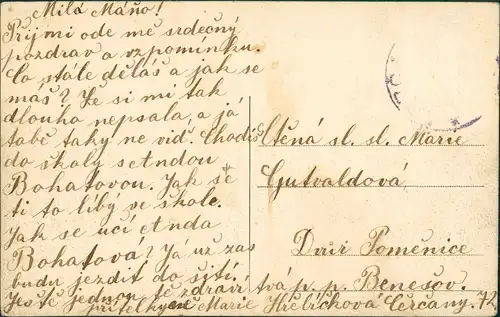 Milá Máňo!
Přijmi ode mě srdečný
pozdrav a vzpomínku.
Co stále děláš a jak se
máš? Že si mi tak
dlouho nepsala, a já
tabě taky ne viď. Chodíš
do školy s Andou
Bohatovou. Jak se
ti to líbý ve škole.
Jak se učí Anda
Bohatová? Já už zas
budu jezdit do šití.
Ještě jednou tě zdraví
přítelkyně Marie Hřebíčková Čerčany. 72
Ctěná sl. sl. Marie
Gutvaldová
Dvůr Poměnice
p. p. Benešov.